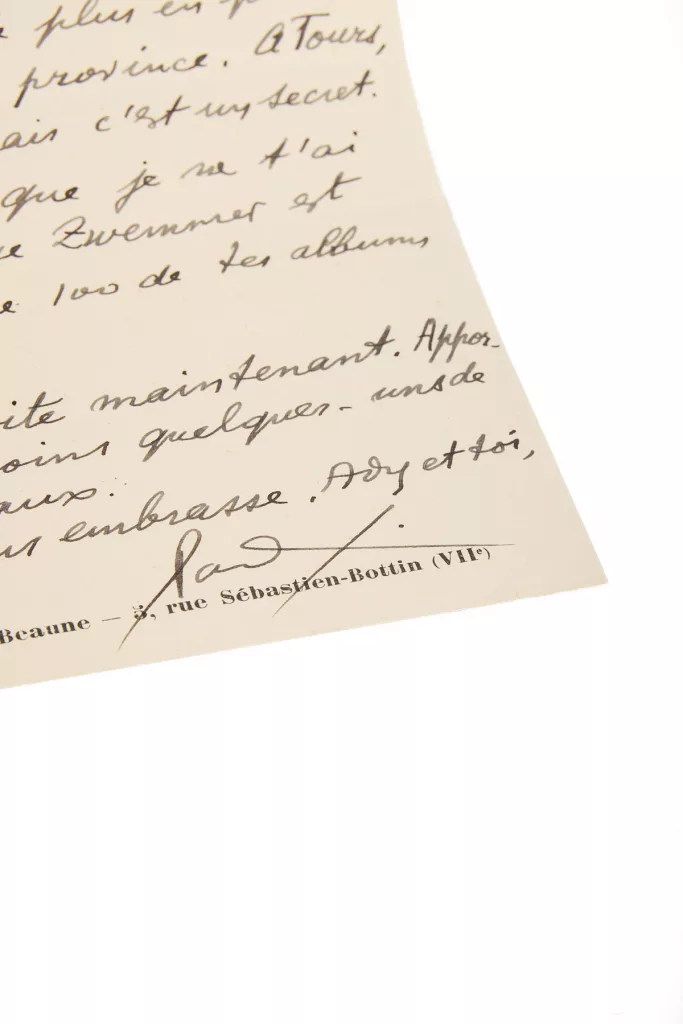 plus en p
province. A Tours,
ais c'est un secret.
que je ne t'ai
ue Zwemmer est
e 100 de tes albums
ite maintenant. Appor-
oins quelques-uns de
aux.
us embrasse. Ady et toi,
Paul
Beaune — 5, rue Sébastien-Bottin (VIIᵉ)